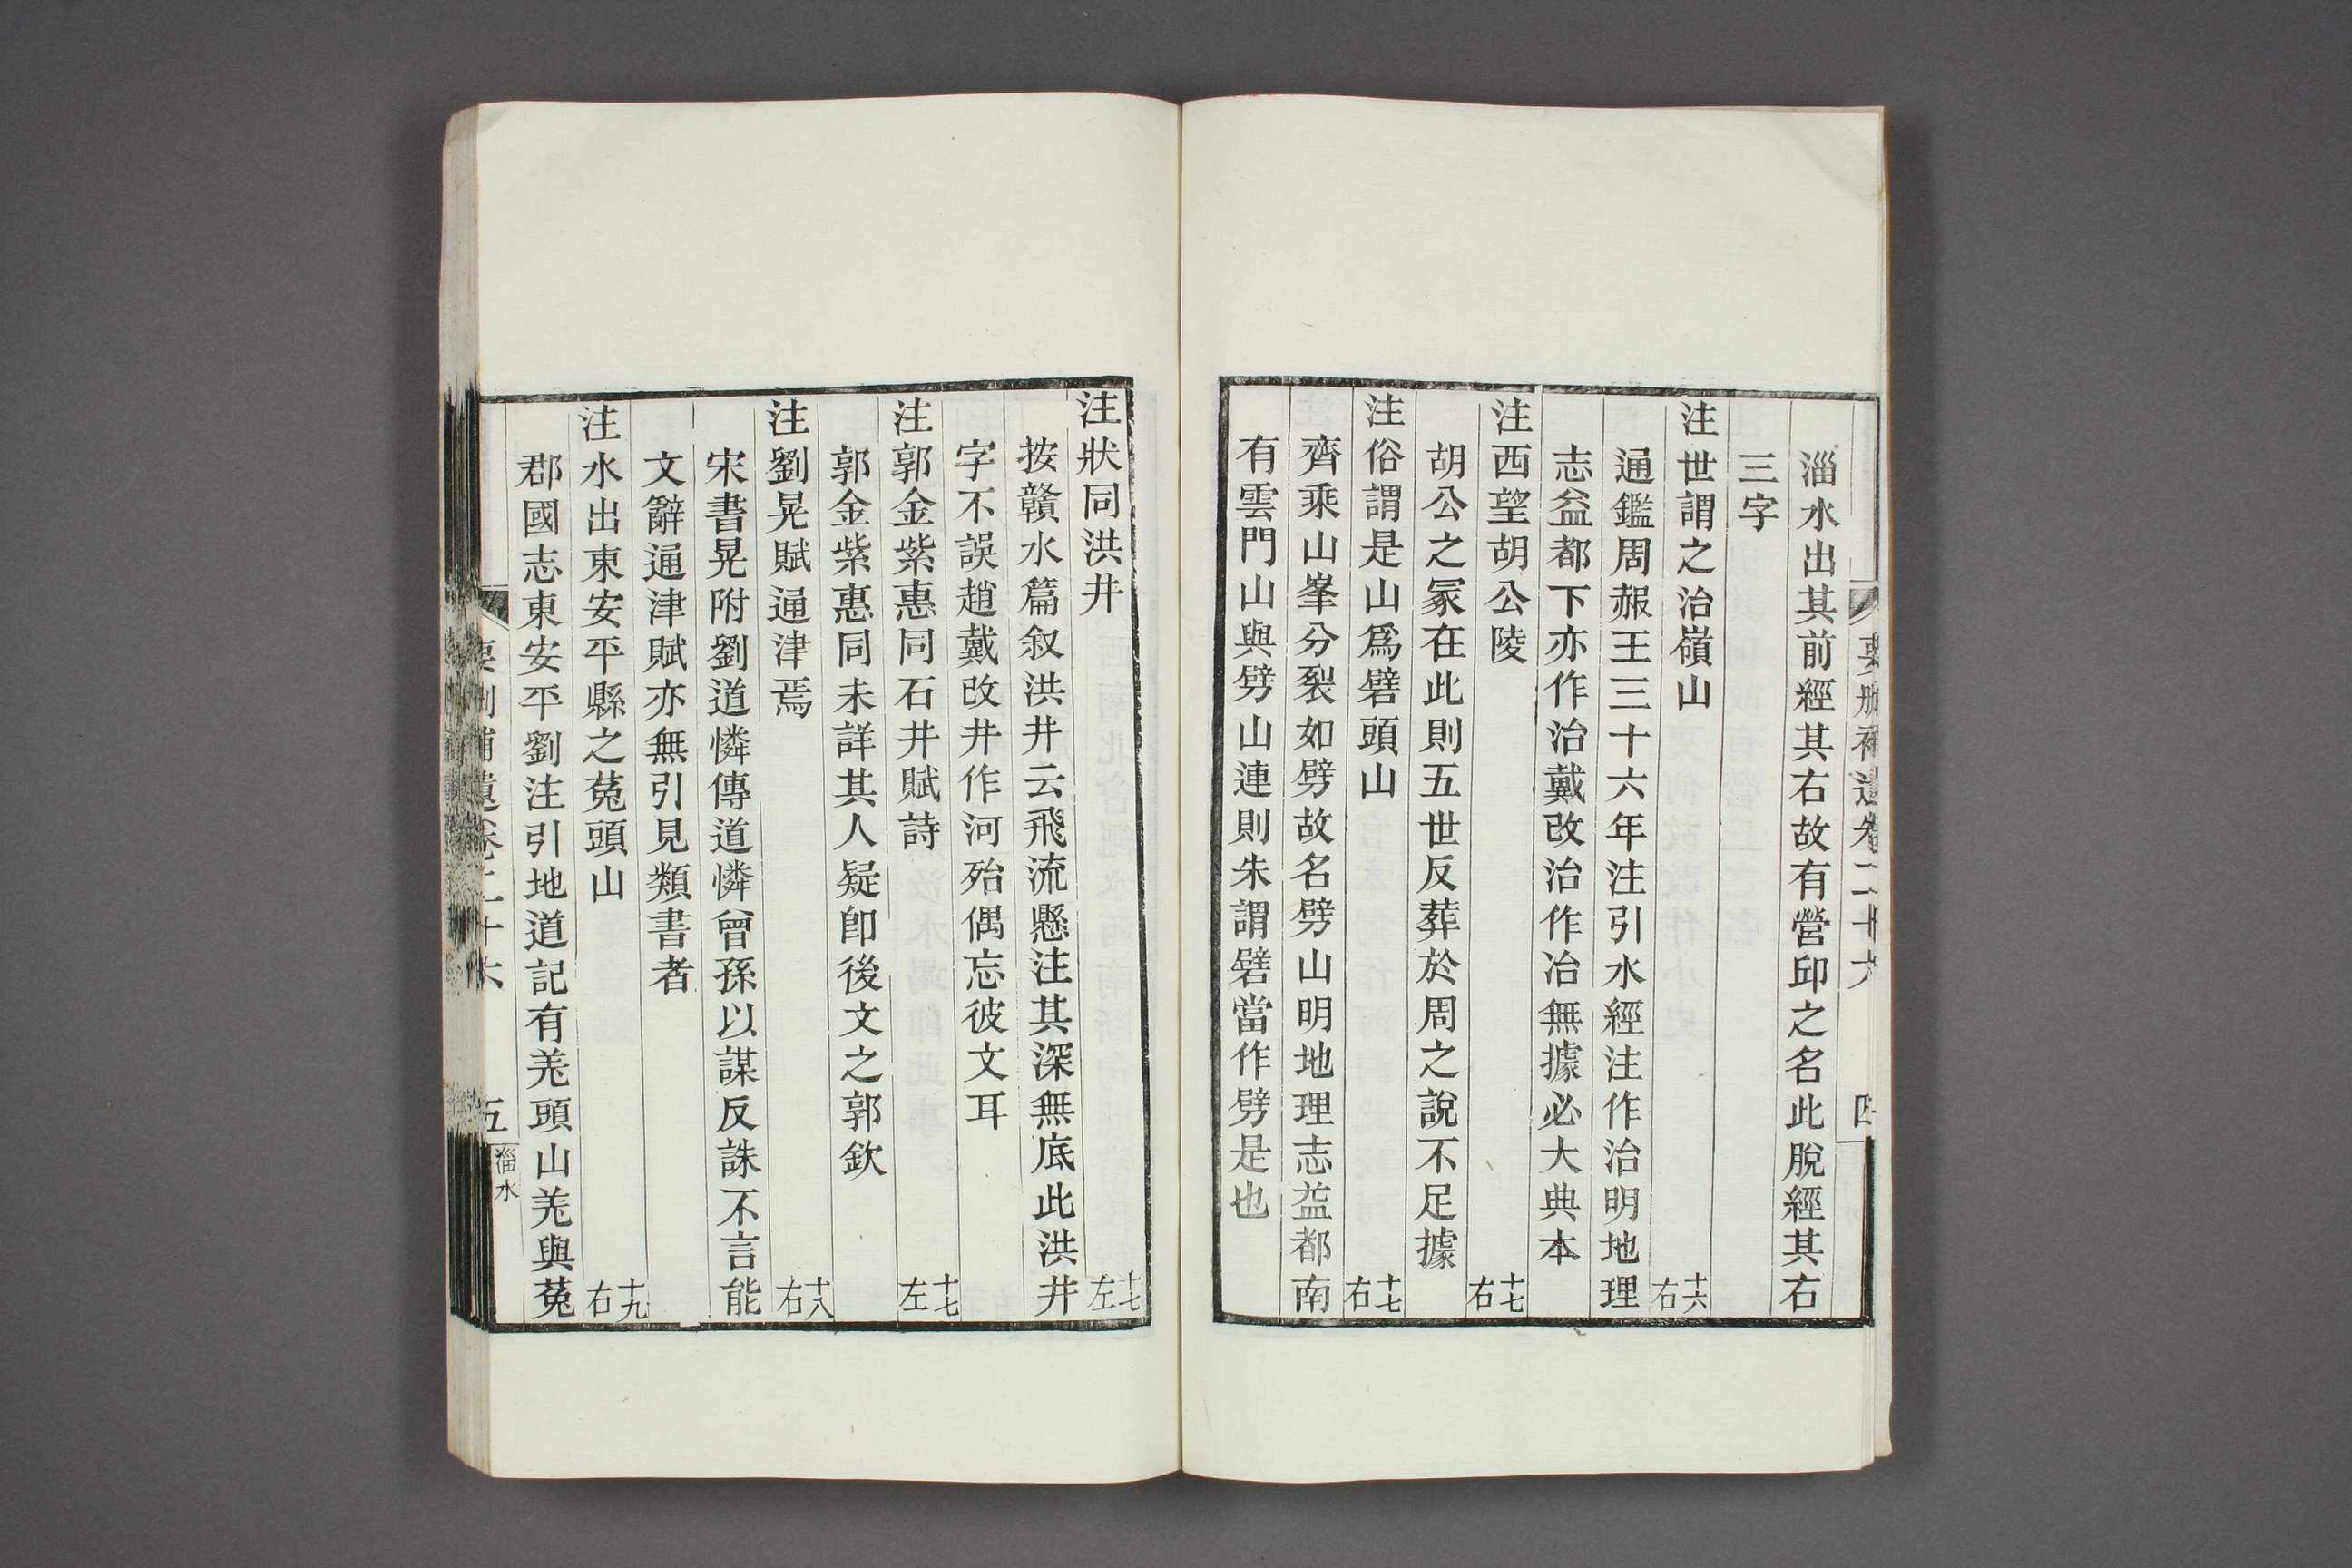 淄水出其前經其右故有營邱之名此脫經其右
三字
注世謂之治嶺山 十六右
通鑑周赧王三十六年注引水經注作治明地理
志益都下亦作治戴改治作冶無據必大典本
注西望胡公陵 十七右
胡公之冡在此則五世反葬於周之說不足據
注俗謂是山爲礕頭山 十七右
齊乘山峯分裂如劈故名劈山明地理志益都南
有雲門山與劈山連則朱謂礕當作劈是也
注狀同洪井 十七左
按贛水篇叙洪井云飛流懸注其深無底此洪井
字不誤趙戴改井作河殆偶忘彼文耳
注郭金紫惠同石井賦詩 十七左
郭金紫惠同未詳其人疑卽後文之郭欽
注劉晃賦逼津焉 十八右
宋書晃附劉道憐傳道憐曾孫以謀反誅不言能
文辭逼津賦亦無引見類書者
注水出東安平縣之菟頭山 十九右
郡國志東安平劉注引地道記有羌頭山羌與菟
要刪補遺卷二十六
五
淄水